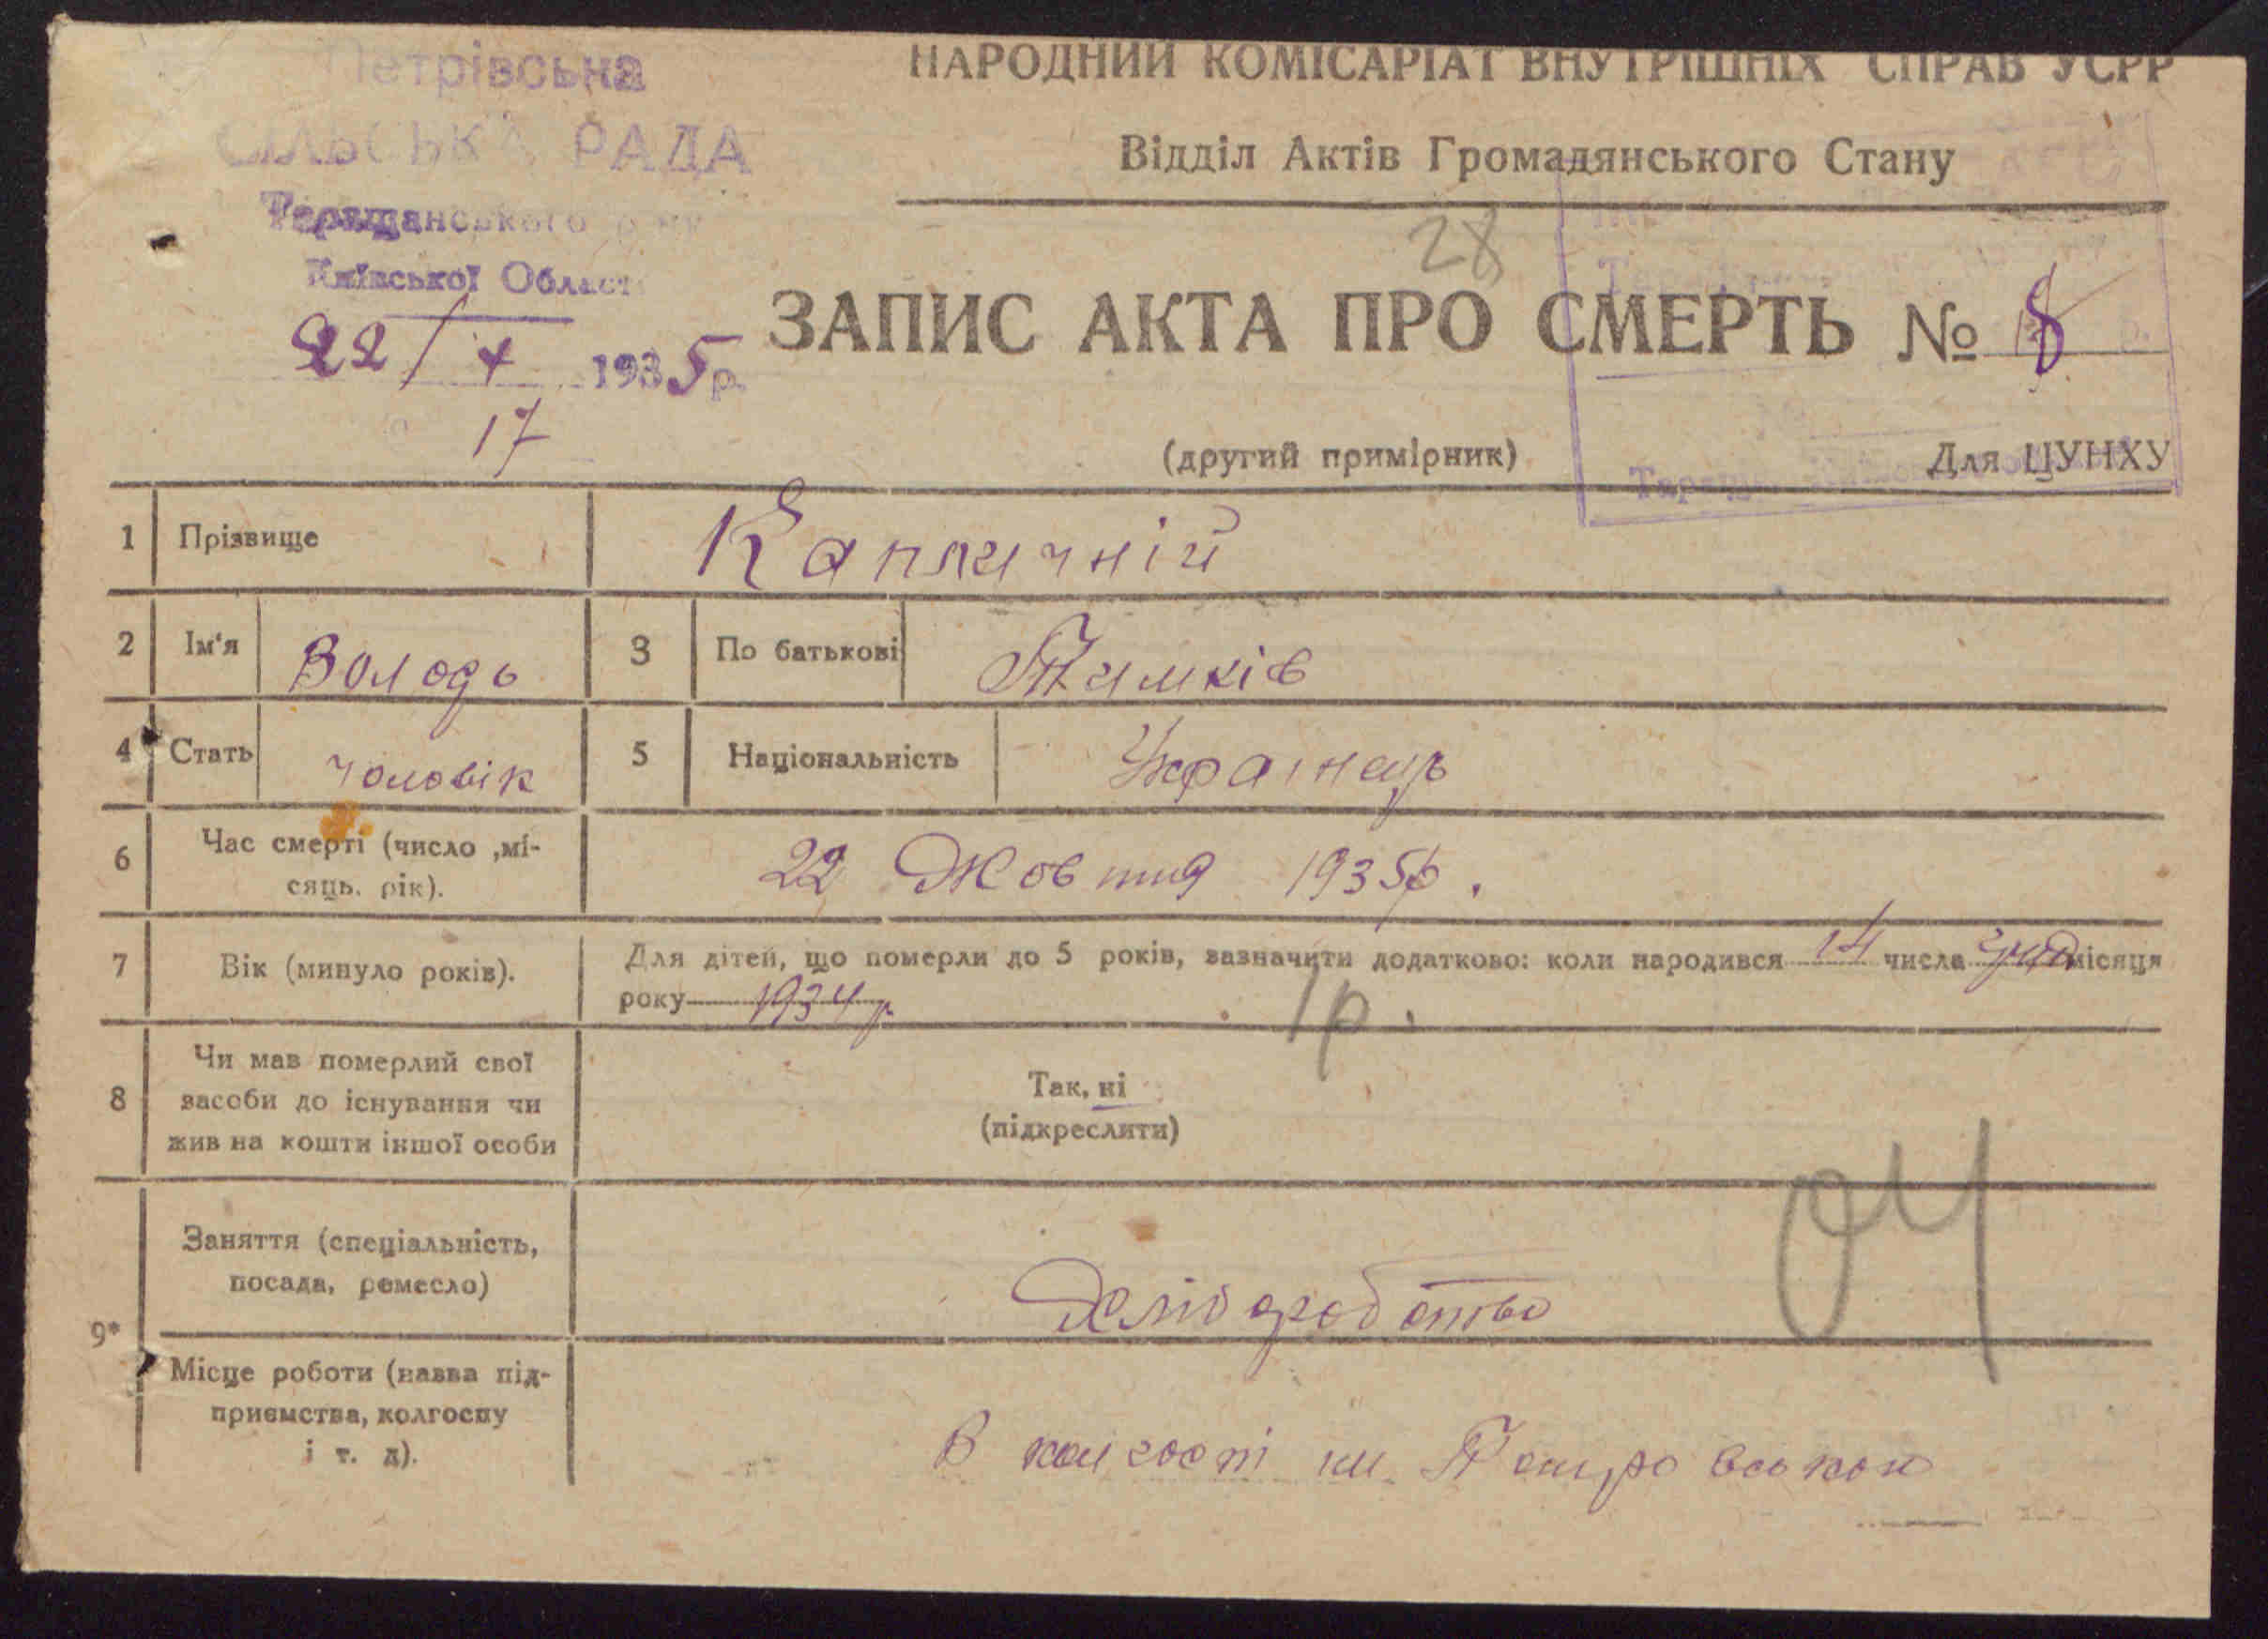 Петрівська
НАРОДНИЙ КОМІСАРІАТ ВНУТРІШНІХ СПРАВ УСРР
СІЛЬСЬКА РАДА
Відділ Актів Громадянського Стану
Таращанського р-ну
28
Київської Області
ЗАПИС АКТА ПРО СМЕРТЬ № 8
22/X 1935 р.
17
(другий примірник)
Для ЦУНХУ
1 Прізвище Капличній
2 Ім'я Володь 3 По батькові Тимків
4 Стать чоловік 5 Національність Украінець
6 Час смерті (число ,мі-
сяць. рік).
22 Жовтня 1935р.
7 Вік (минуло років). Для дітей, що померли до 5 років, зазначити додатково: коли народився 14 числа груд місяця
року 1934р 1р.
8 Чи мав померлий свої
засоби до існування чи
жив на кошти іншої особи
Так, ні
(підкреслити)
04
9* Заняття (спеціальність,
посада, ремесло)
Місце роботи (назва під-
приємства, колгоспу
і т. д).
В колгоспі ім.